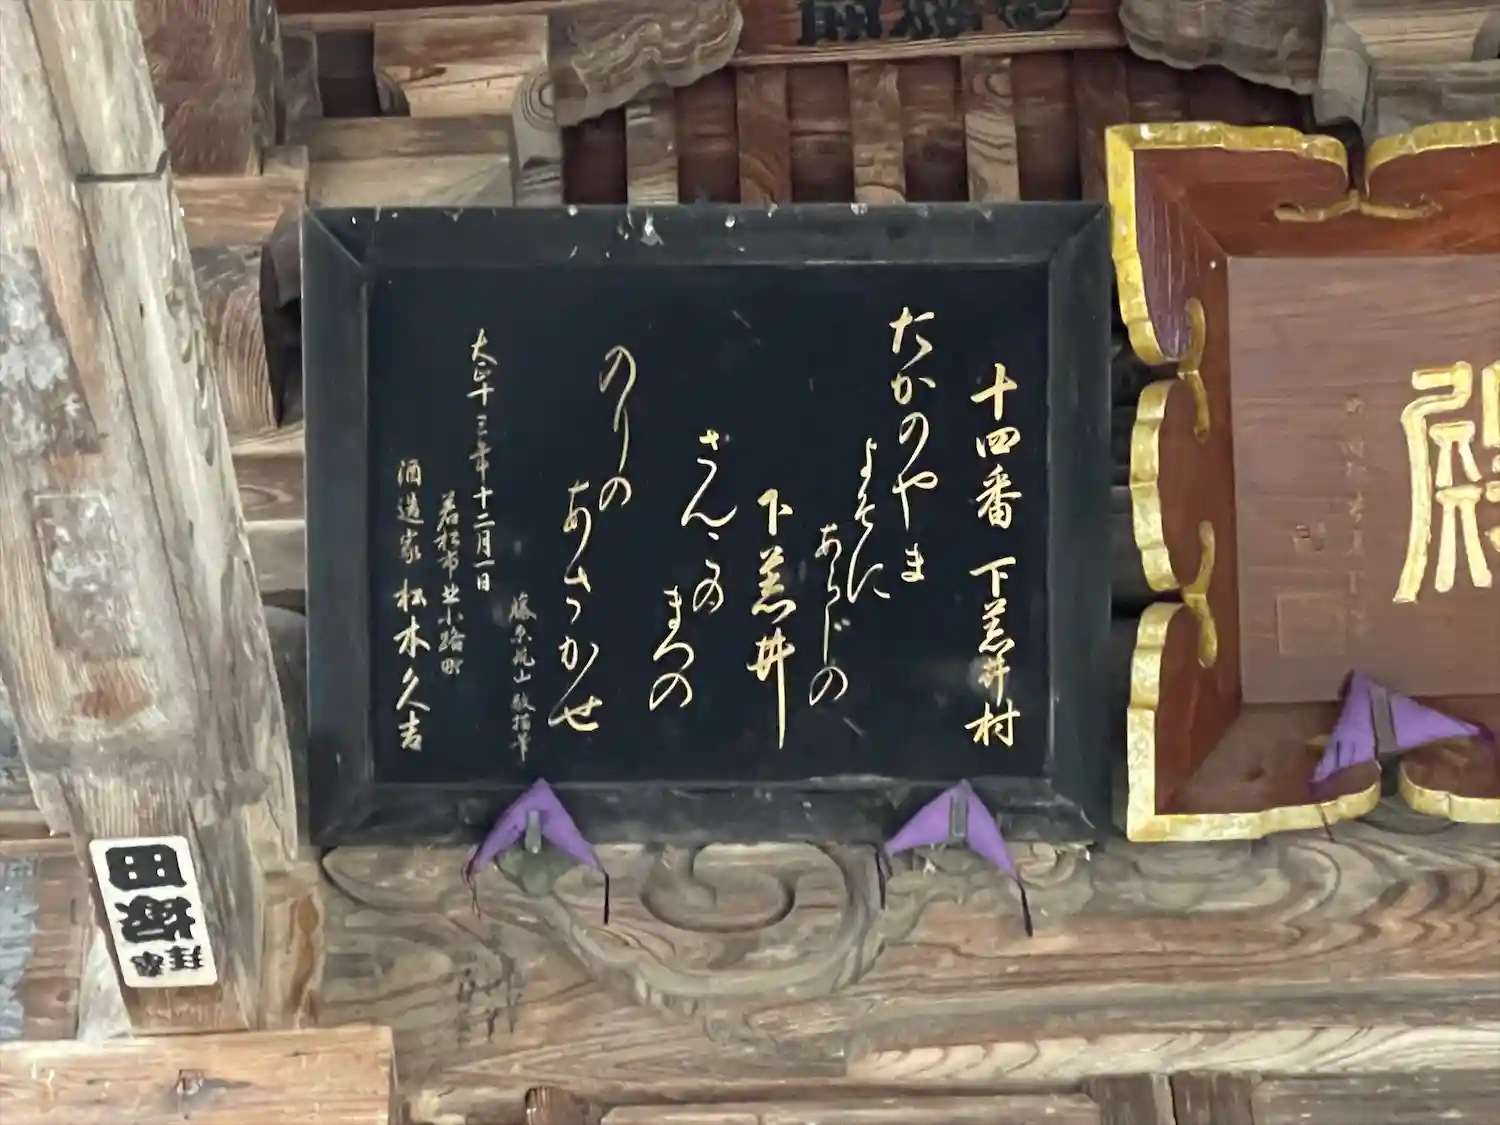 十四番 下荒井村
たかのやま
よそに
あらじの
下荒井
さんこの
まつの
のりの
あさかせ
大正十三年十二月一日
若松市北小路町
酒造家 松木久吉
塚田
殿